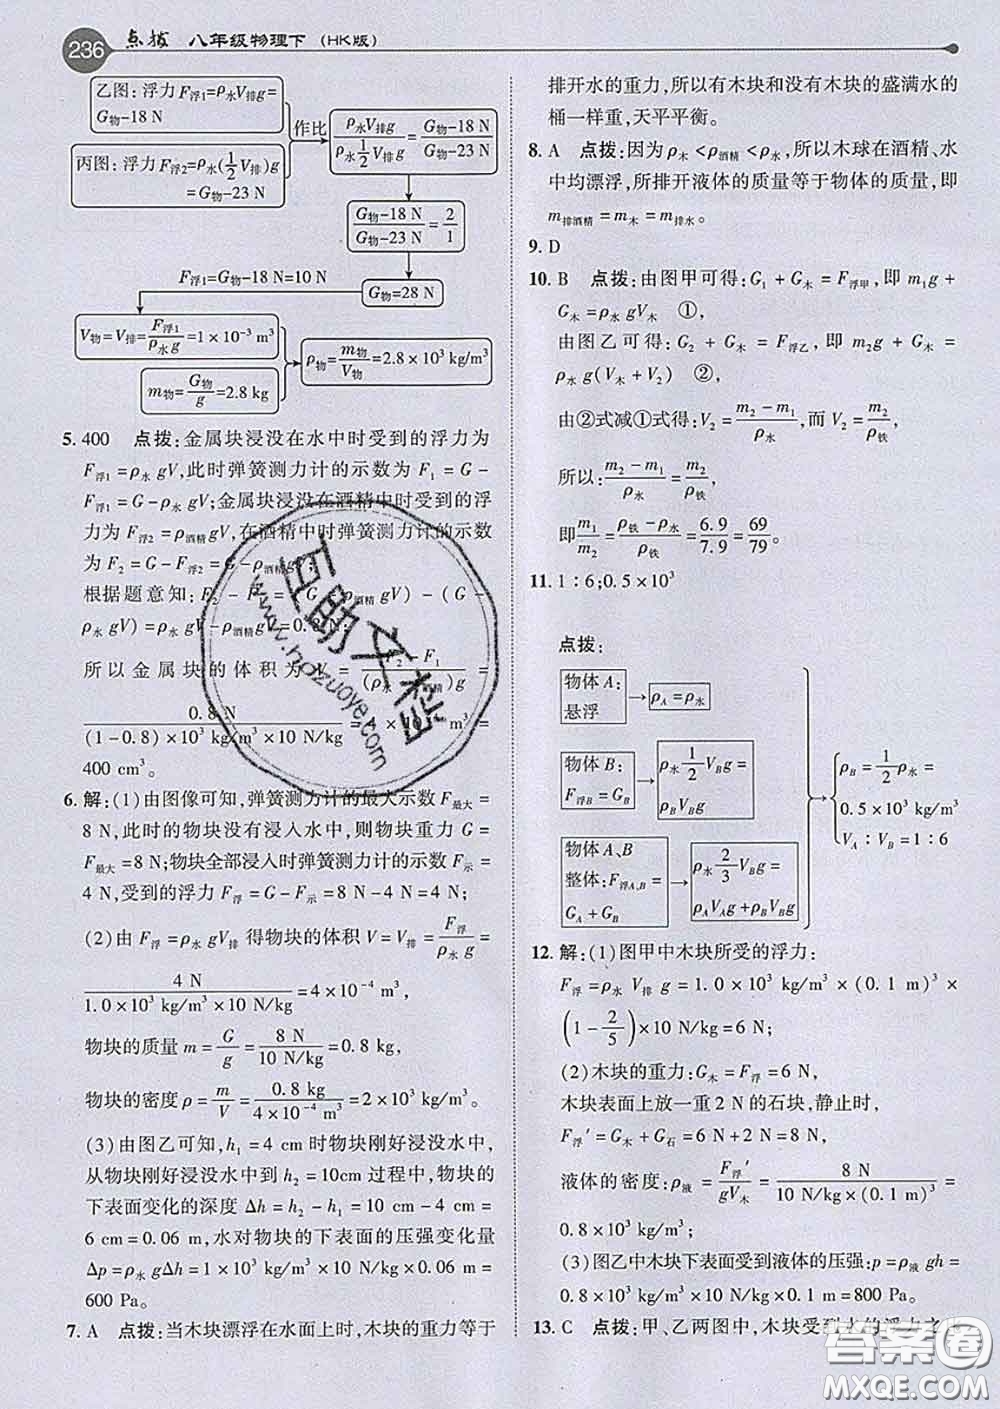 236 点拨 八年级物理下 (HK版)
乙图：浮力F浮1=ρ水V排g=
G物-18 N
丙图：浮力F浮2=ρ水(1/2 V排)g
=G物-23 N
作比
ρ水V排g / ρ水 1/2 V排 g = G物-18 N / G物-23 N
G物-18 N / G物-23 N = 2/1
F浮1=G物-18 N=10 N
G物=28 N
V物=V排=F浮1/ρ水g=1×10⁻³ m³
m物=G物/g=2.8 kg
ρ物=m物/V物=2.8×10³ kg/m³
5. 400 点拨：金属块浸没在水中时受到的浮力为
F浮1=ρ水 gV,此时弹簧测力计的示数为 F₁=G-
F浮1=G-ρ水 gV;金属块浸没在酒精中时受到的浮
力为 F浮2=ρ酒精gV,在酒精中时弹簧测力计的示数
为 F₂=G-F浮2=G-ρ酒精gV;
根据题意知：F₂-F₁=(G-ρ酒精gV)-(G-
ρ水 gV)=ρ水gV-ρ酒精gV=0.8 N;
所以金属块的体积为 V = F₂-F₁ / (ρ水-ρ酒精)g =
0.8 N / (1-0.8)×10³ kg/m³×10 N/kg = m³=
400 cm³。
6. 解：(1)由图像可知,弹簧测力计的最大示数 F最大=
8 N,此时的物块没有浸入水中,则物块重力 G=
F最大=8 N;物块全部浸入时弹簧测力计的示数 F示=
4 N,受到的浮力 F浮=G-F示=8 N-4 N=4 N;
(2)由 F浮=ρ水 gV排 得物块的体积 V=V排=F浮/ρ水 g=
4 N / 1.0×10³ kg/m³×10 N/kg =4×10⁻⁴ m³,
物块的质量 m=G/g=8 N / 10 N/kg=0.8 kg,
物块的密度 ρ=m/V=0.8 kg / 4×10⁻⁴ m³=2×10³ kg/m³。
(3)由图乙可知,h₁=4 cm 时物块刚好浸没水中,
从物块刚好浸没水中到 h₂=10cm 过程中,物块的
下表面变化的深度 Δh=h₂-h₁=10 cm-4 cm=
6 cm=0.06 m,水对物块的下表面的压强变化量
Δp=ρ水 gΔh=1×10³ kg/m³×10 N/kg×0.06 m=
600 Pa。
7. A 点拨：当木块漂浮在水面上时,木块的重力等于
排开水的重力,所以有木块和没有木块的盛满水的
桶一样重,天平平衡。
8. A 点拨：因为 ρ木<ρ酒精<ρ水,所以木球在酒精、水
中均漂浮,所排开液体的质量等于物体的质量,即
m排酒精=m木=m排水。
9. D
10. B 点拨：由图甲可得：G₁+G木=F浮甲,即 m₁g+
G木=ρ水 gV木 ①,
由图乙可得：G₂+G木=F浮乙,即 m₂g+G木=
ρ水 g(V木+V₂) ②,
由②式减①式得：V₂=m₂-m₁/ρ水,而 V₂=m₂/ρ铁,
所以：m₂-m₁/ρ水=m₂/ρ铁,
即m₁/m₂=ρ铁-ρ水/ρ铁=6.9/7.9=69/79。
11. 1∶6;0.5×10³
点拨：
物体 A：
悬浮
ρA=ρ水
物体 B：
F浮B=GB
ρ水 1/2 VBg=
ρBVBg
物体 A、B
整体：F浮A,B=
GA+GB
ρ水 2/3 VBg=
ρAVAg+ρBVBg
ρB=1/2 ρ水=
0.5×10³ kg/m³
VA∶VB=1∶6
12. 解：(1)图甲中木块所受的浮力：
F浮=ρ水 V排 g=1.0×10³ kg/m³×(0.1 m)³×
(1-2/5)×10 N/kg=6 N;
(2)木块的重力：G木=F浮=6 N,
木块表面上放一重 2 N 的石块,静止时,
F浮′=G木+G石=6 N+2 N=8 N,
液体的密度：ρ液=F浮′/gV木=8 N / 10 N/kg×(0.1 m)³=
0.8×10³ kg/m³;
(3)图乙中木块下表面受到液体的压强：p=ρ液 gh=
0.8×10³ kg/m³×10 N/kg×0.1 m=800 Pa。
13. C 点拨：甲、乙两图中,木块受到水的浮力之
互助文档
www.hozuoye.com
答案圈
MXQE.COM